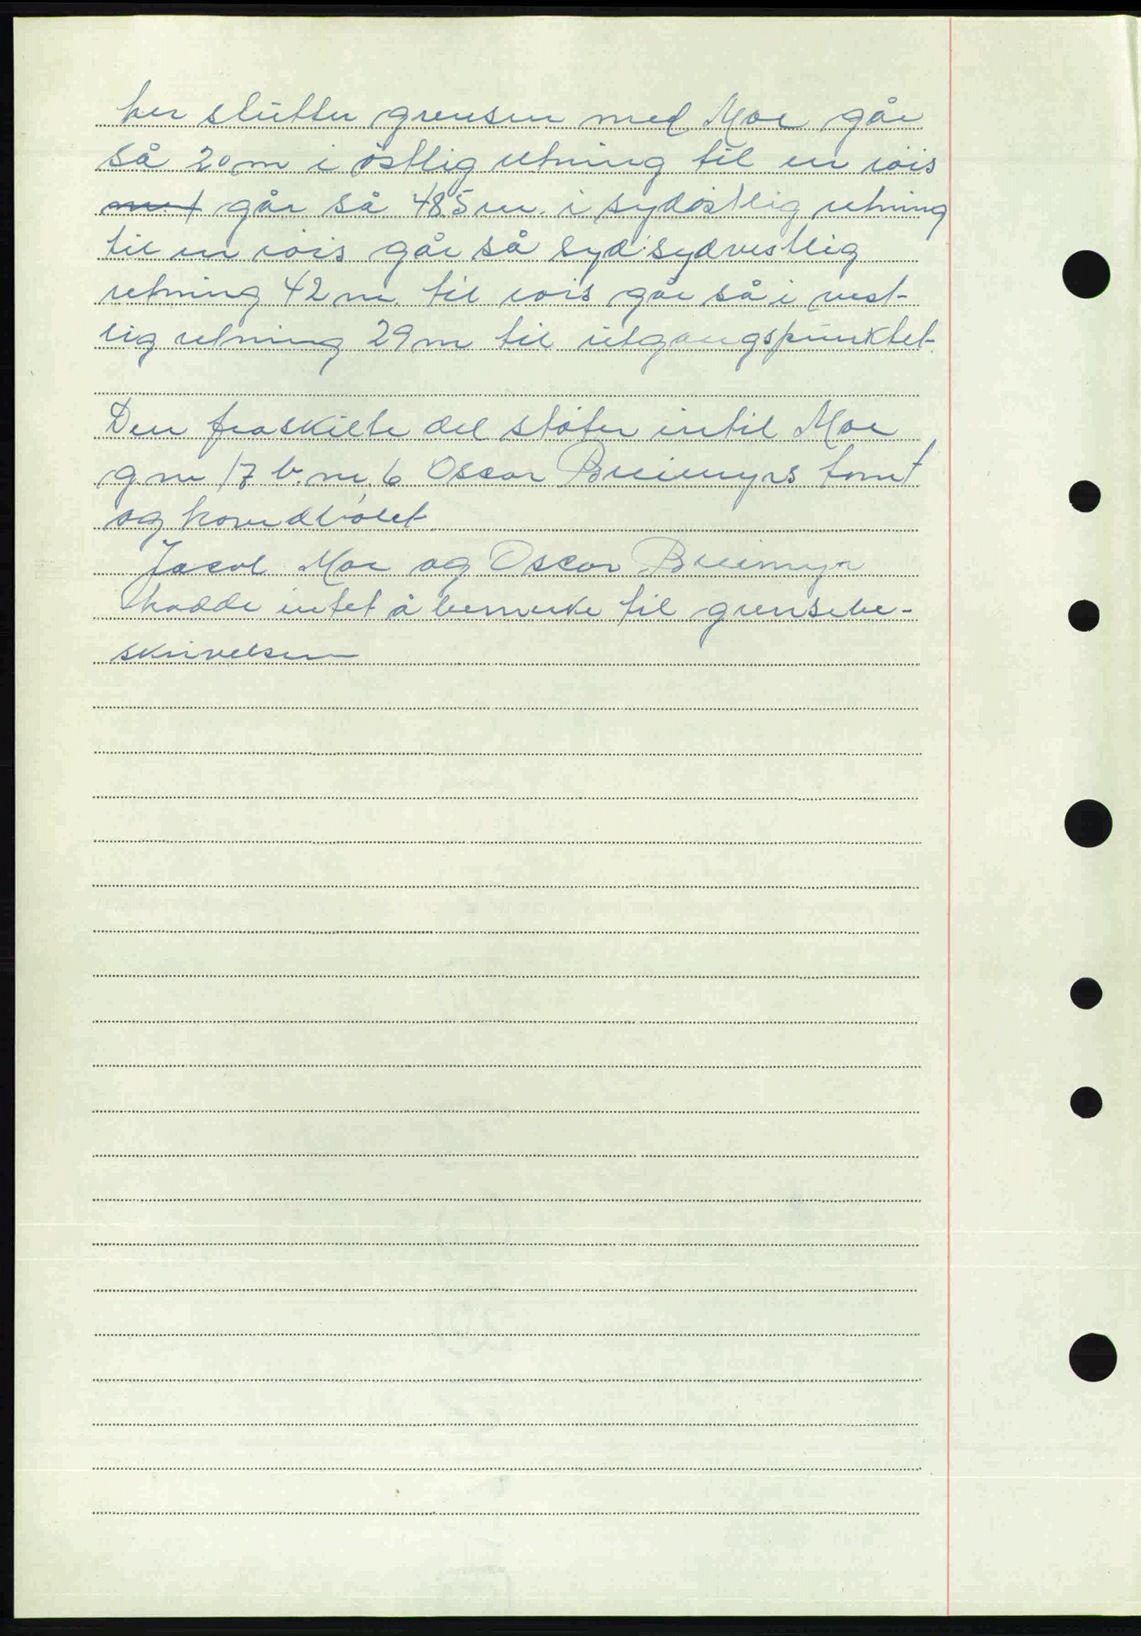 her slutter grensen med Moe går
så 20 m i østlig retning til en
går så 48.5 m. i sydøstlig retning
til en går så syd sydvestlig
retning 42 m til går så i vest-
lig retning 29 m til utgangspunktet.
Den fraskilte del støter intil Moe
g.nr 17 b.nr. 6 Oscar Breimyrs tomt
og hovedbølet
Jacob Moe og Oscar Breimyr
hadde intet å bemerke til grensebe-
skrivelsen